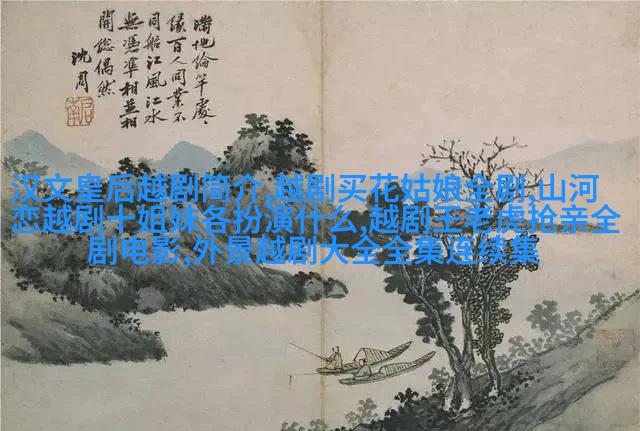 满地纶竿处处
缘百人同业不
同船江风江水
无凭准相并相
开总偶然
沈周
汉文皇后越剧简介,越剧买花姑娘全剧,山河
恋越剧十姐妹各扮演什么,越剧王老虎抢亲全
剧电影,外景越剧大全全集连续集